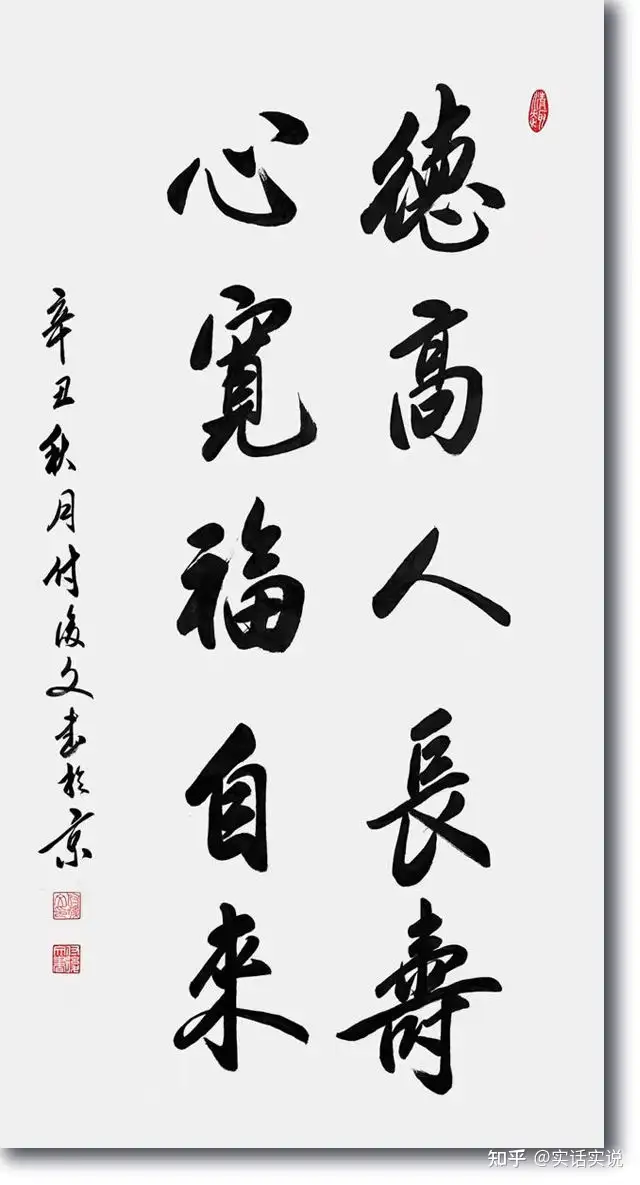 德高人長壽
心寬福自來
辛丑秋月付文书於京
知乎 @实话实说